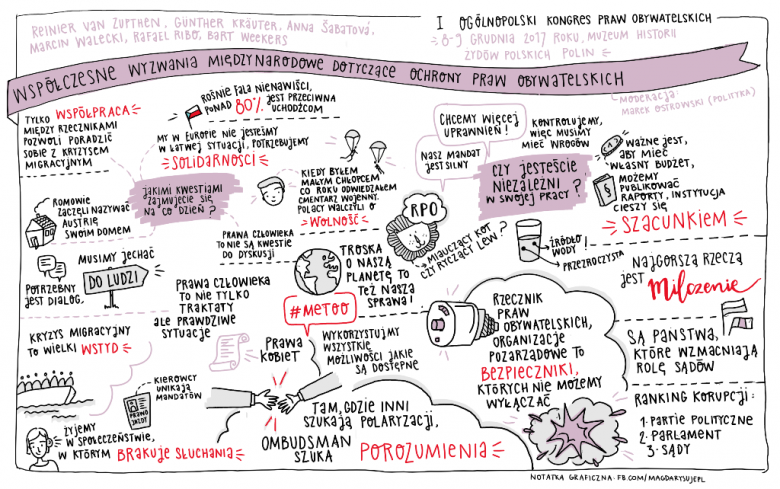 REINIER VAN ZUPTHEN, GÜNTHER KRÄUTER, ANNA ŠABATOVÁ,
MARCIN WALECKI, RAFAEL RIBO, BART WEEKERS
I OGÓLNOPOLSKI KONGRES PRAW OBYWATELSKICH
8-9 GRUDNIA 2017 ROKU, MUZEUM HISTORII
ŻYDÓW POLSKICH POLIN
WSPÓŁCZESNE WYZWANIA MIĘDZYNARODOWE DOTYCZĄCE OCHRONY PRAW OBYWATELSKICH
MODERACJA:
MAREK OSTROWSKI (POLITYKA)
TYLKO WSPÓŁPRACA
MIĘDZY RZECZNIKAMI
POZWOLI PORADZIĆ
SOBIE Z KRYZYSEM
MIGRACYJNYM
ROŚNIE FALA NIENAWIŚCI,
PONAD 80% JEST PRZECIWNA
UCHODŹCOM
MY W EUROPIE NIE JESTEŚMY
W ŁATWEJ SYTUACJI, POTRZEBUJEMY
SOLIDARNOŚCI
JAKIMI KWESTIAMI
ZAJMUJECIE SIĘ
NA CO DZIEŃ?
KIEDY BYŁEM
MAŁYM CHŁOPCEM
CO ROKU ODWIEDZAŁEM
CMENTARZ WOJENNY.
POLACY WALCZYLI O
WOLNOŚĆ
ROMOWIE
ZACZĘLI NAZYWAĆ
AUSTRIĘ
SWOIM DOMEM
PRAWA CZŁOWIEKA
TO NIE SĄ KWESTIE
DO DYSKUSJI
MUSIMY JECHAĆ
DO LUDZI
POTRZEBNY
JEST DIALOG
PRAWA CZŁOWIEKA
TO NIE TYLKO
TRAKTATY
ALE PRAWDZIWE
SYTUACJE
TROSKA
O NASZĄ
PLANETĘ TO
TEŻ NASZA
SPRAWA!
#METOO
PRAWA
KOBIET
WYKORZYSTUJMY
WSZYSTKIE
MOŻLIWOŚCI JAKIE
SĄ DOSTĘPNE
KRYZYS MIGRACYJNY
TO WIELKI WSTYD
KIEROWCY
UNIKAJĄ
MANDATÓW
PRAWO
JAZDY
ŻYJEMY
W SPOŁECZEŃSTWIE,
W KTÓRYM BRAKUJE SŁUCHANIA
TAM, GDZIE INNI
SZUKAJĄ POLARYZACJI,
OMBUDSMAN
SZUKA POROZUMIENIA
CHCEMY WIĘCEJ
UPRAWNIEŃ!
NASZ MANDAT
JEST SILNY
KONTROLUJEMY,
WIĘC MUSIMY
MIEĆ WROGÓW
CZY JESTEŚCIE
NIEZALEŻNI
W SWOJEJ PRACY?
WAŻNE JEST,
ABY MIEĆ
WŁASNY BUDŻET,
MOŻEMY
PUBLIKOWAĆ
RAPORTY, INSTYTUCJA
CIESZY SIĘ
SZACUNKIEM
RPO
MIAUCZĄCY KOT
CZY RYCZĄCY LEW?
ŹRÓDŁO
WODY!
PRZEZROCZYSTA
NAJGORSZĄ RZECZĄ
JEST Milczenie
RZECZNIK
PRAW
OBYWATELSKICH,
ORGANIZACJE
POZARZĄDOWE TO
BEZPIECZNIKI,
KTÓRYCH NIE MOŻEMY
WYŁĄCZAĆ
SĄ PAŃSTWA,
KTÓRE WZMACNIAJĄ
ROLĘ SĄDÓW
RANKING KORUPCJI:
1. PARTIE POLITYCZNE
2. PARLAMENT
3. SĄDY
NOTATKA GRAFICZNA: FB.COM/MAGDARYSUJEPL